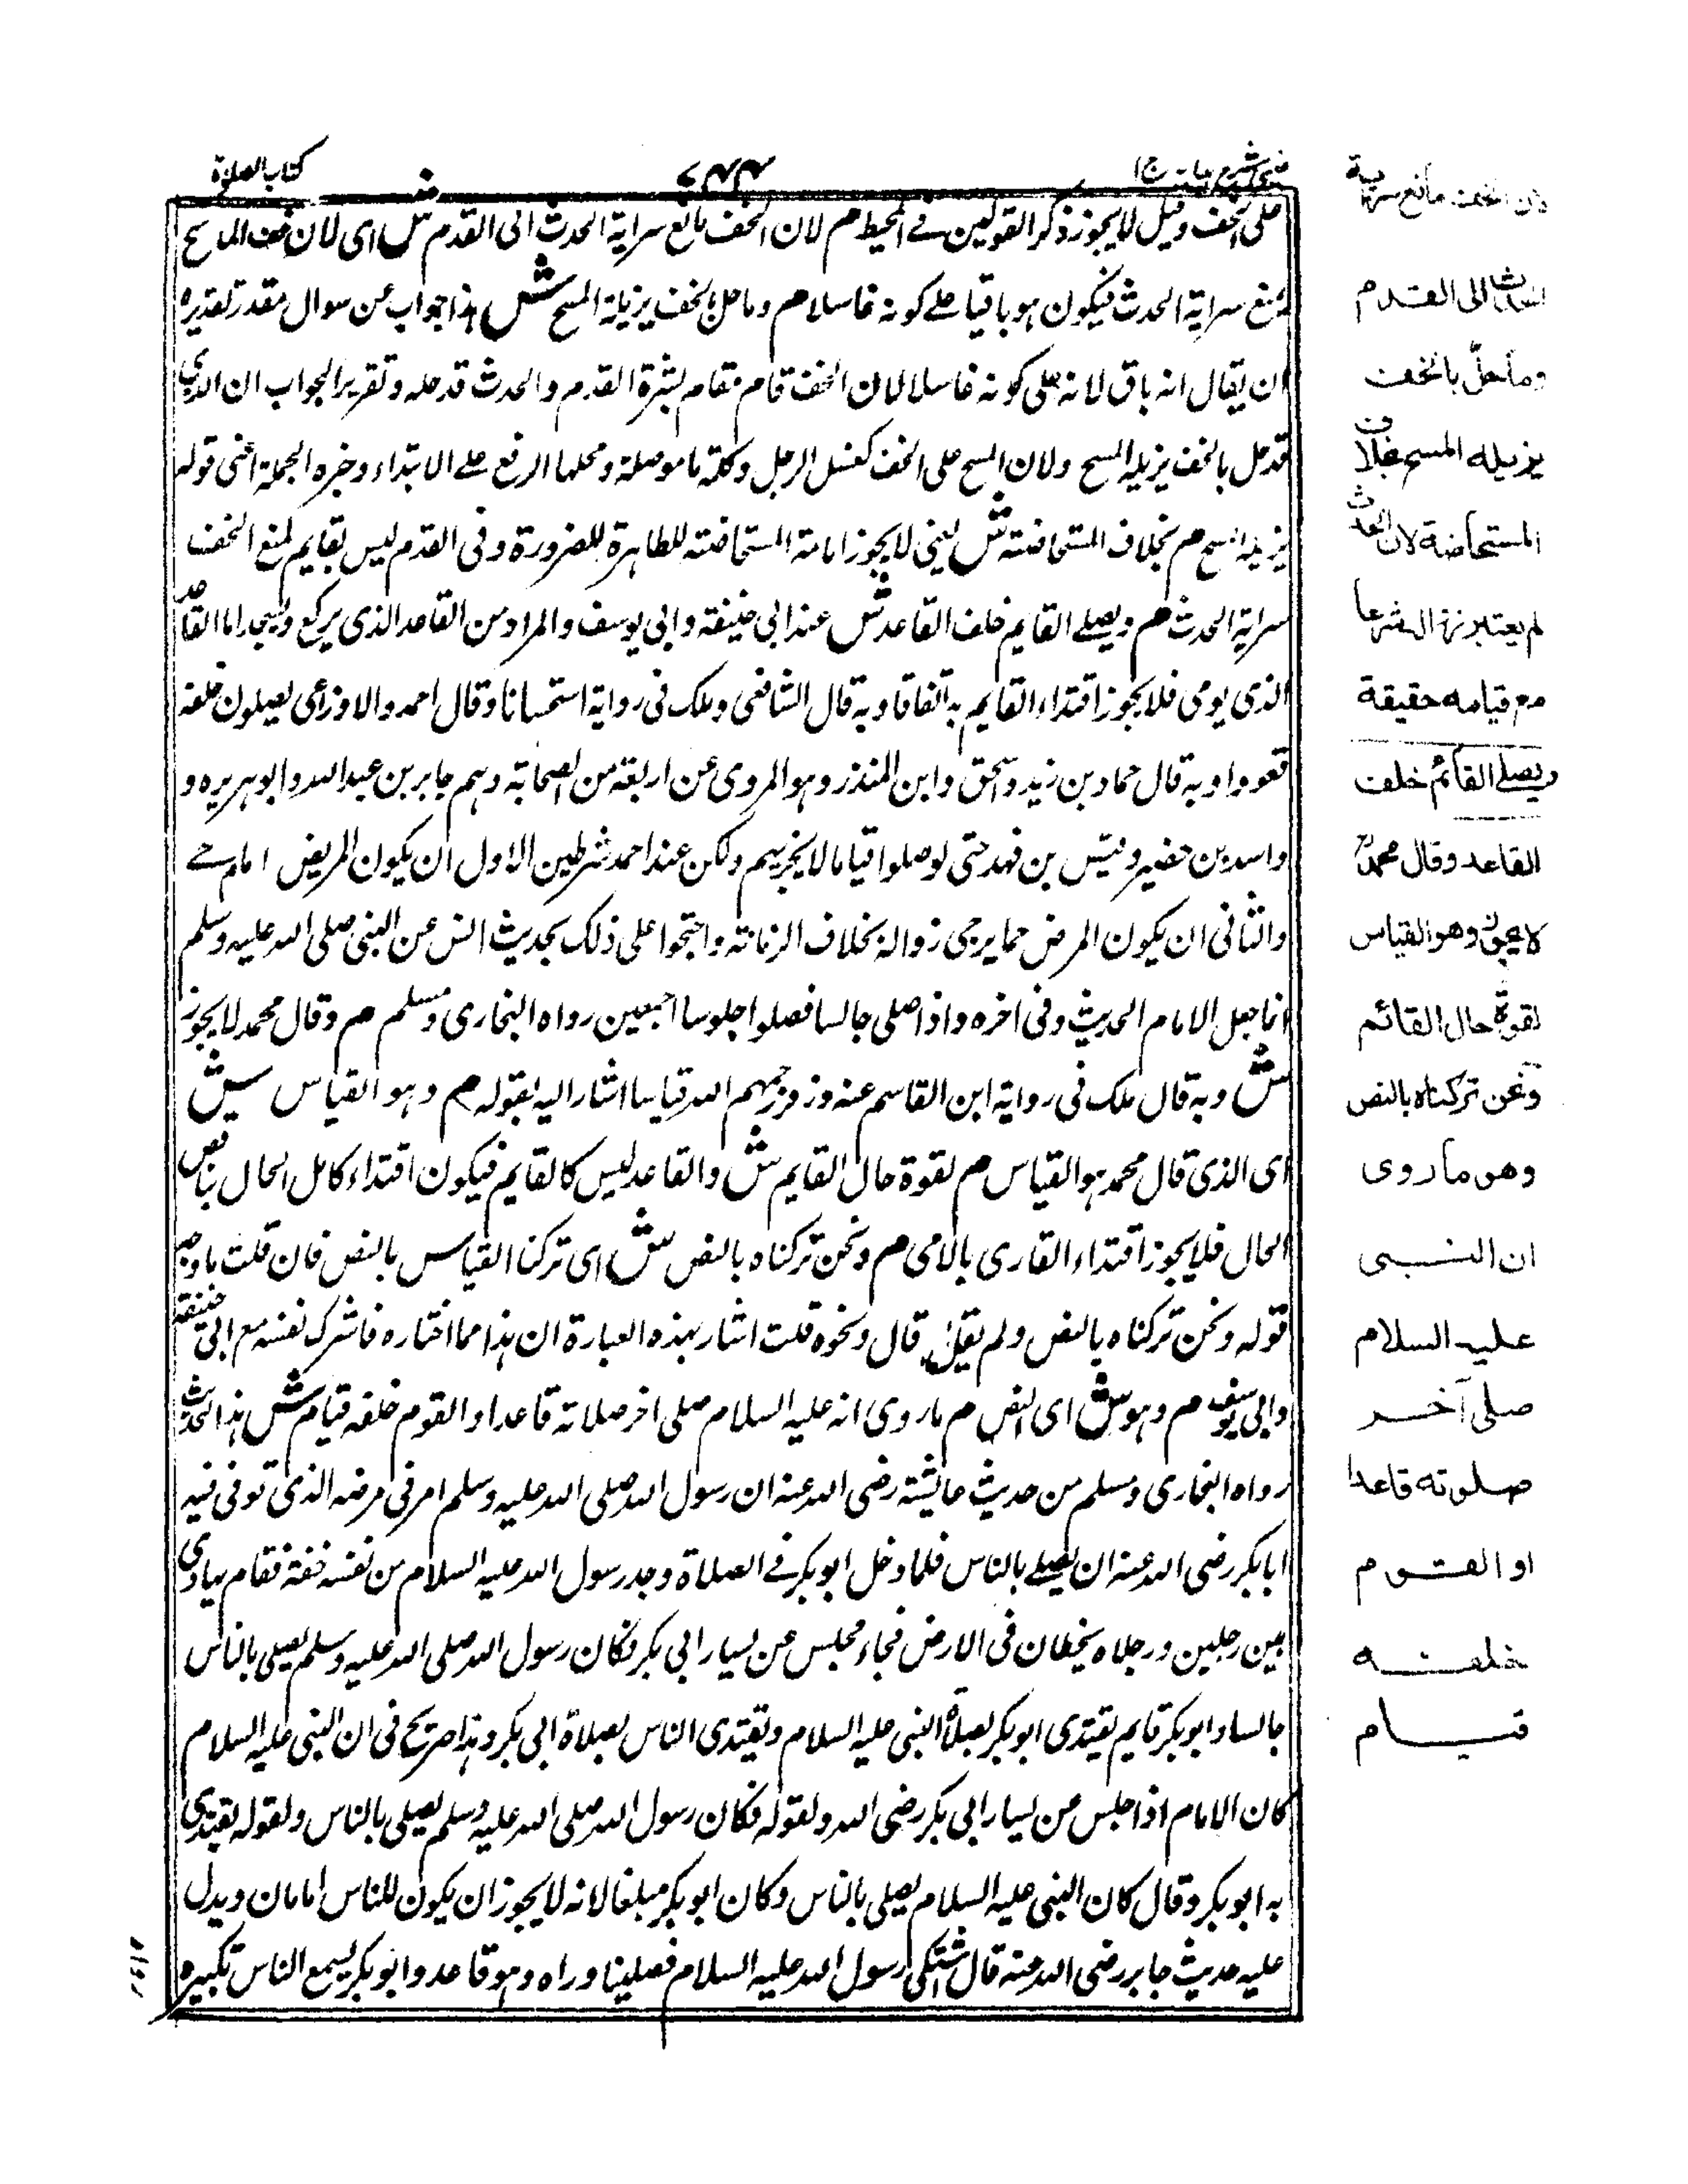 كتاب الصلاة
على الخف وقيل لا يجوز ذكر القولين في المحيط م لان الخف مانع سراية الحدث الى القدم ش اى لان خف الماسح
يمنع سراية الحدث فيكون هو باقيا على كونه غاسلا م وما حل بالخف يزيله المسح ش هذا جواب عن سوال مقدر تقديره
ان يقال انه باق لانه على كونه غاسلا لان الخف قام مقام بشرة القدم والحدث قد حله وتقرير الجواب ان الذى
قد حل بالخف يزيله المسح ولان المسح على الخف كغسل الرجل وكلمة ما موصلة ومحلها الرفع على الابتداء وخبره الجملة اعنى قوله
يزيله المسح م بخلاف المستحاضة ش يعنى لا يجوز امامة المستحاضة للطاهرة للضرورة وفى القدم ليس بقايم لمنع الخف
سراية الحدث م ويصلے القايم خلف القاعد ش عند ابى حنيفة وابى يوسف والمراد من القاعد الذى يركع ويسجد اما القاعد
الذى يومى فلا يجوز اقتداء القايم به اتفاقا وبه قال الشافعى وملك فى رواية استحسانا وقال احمد والاوزاعى يصلون خلفه
قعودا وبه قال حماد بن زيد واسحق وابن المنذر وهو المروى عن اربعة من الصحابة وهم جابر بن عبد الله وابو هريره و
واسد بن حضير وقيس بن فهد حتى لو صلوا قياما لا يجزيهم ولكن عند احمد شرطين الاول ان يكون المريض امام حے
والثانى ان يكون المرض مما يرجى زواله بخلاف الزمانة واحتجوا على ذلك بحديث انس عن النبى صلى الله عليه وسلم
انما جعل الامام الحديث وفى اخره واذا صلى جالسا فصلوا جلوسا اجمعين رواه البخارى ومسلم م وقال محمد لا يجوز
ش وبه قال ملك فى رواية ابن القاسم عنه وزفر رحمهم الله قياسا اشار اليه بقوله م وهو القياس ش
اى الذى قال محمد هو القياس م لقوة حال القايم ش والقاعد ليس كالقايم فيكون اقتداء كامل الحال بناقص
الحال فلا يجوز اقتداء القارى بالامى م ونحن تركناه بالنص ش اى تركنا القياس بالنص فان قلت ما وجه
قوله ونحن تركناه بالنص ولم يقل قال ونحوه قلت اشار بهذه العبارة ان هذا مما اختاره فاشرك نفسه مع ابى حنيفة
وابى يوسف م وهو ش اى النص م ما روى انه عليه السلام صلى اخر صلاته قاعدا والقوم خلفه قيام ش هذا الحديث
رواه البخارى ومسلم من حديث عايشة رضى الله عنه ان رسول الله صلى الله عليه وسلم امر فى مرضه الذى توفى فيه
ابابكر رضى الله عنه ان يصلے بالناس فلما دخل ابو بكر فے الصلاة وجد رسول الله عليه السلام من نفسه خفة فقام يهادى
بين رجلين ورجلاه يخطان فى الارض فجاء فجلس عن يسار ابى بكر فكان رسول الله صلى الله عليه وسلم يصلى بالناس
جالسا وابو بكر قايم يقتدى ابو بكر بصلاة النبى عليه السلام ويقتدى الناس بصلاة ابى بكر وهذا صريح فى ان النبى عليه السلام
كان الامام اذا جلس عن يسار ابى بكر رضى الله ولقوله فكان رسول الله صلى الله عليه وسلم يصلى بالناس ولقوله يقتدى
به ابو بكر وقال كان النبى عليه السلام يصلى بالناس وكان ابو بكر مبلغا لانه لا يجوز ان يكون للناس امامان ويدل
عليه حديث جابر رضى الله عنه قال اشتكى رسول الله عليه السلام فصلينا وراه وهو قاعد وابو بكر يسمع الناس تكبيره
لان الخف مانع سراية
الحدث الى القدم
وما حلّ بالخف
يزيله المسح بخلاف
المستحاضة لان الحدث
لم يعتبر زواله شرعا
مع قيامه حقيقة
ويصلے القائم خلف
القاعد وقال محمدؒ
لا يجوز وهو القياس
لقوة حال القائم
ونحن تركناه بالنص
وهو ما روى
ان النبى
عليه السلام
صلى آخر
صلوته قاعدا
والقوم
خلفه
قيام